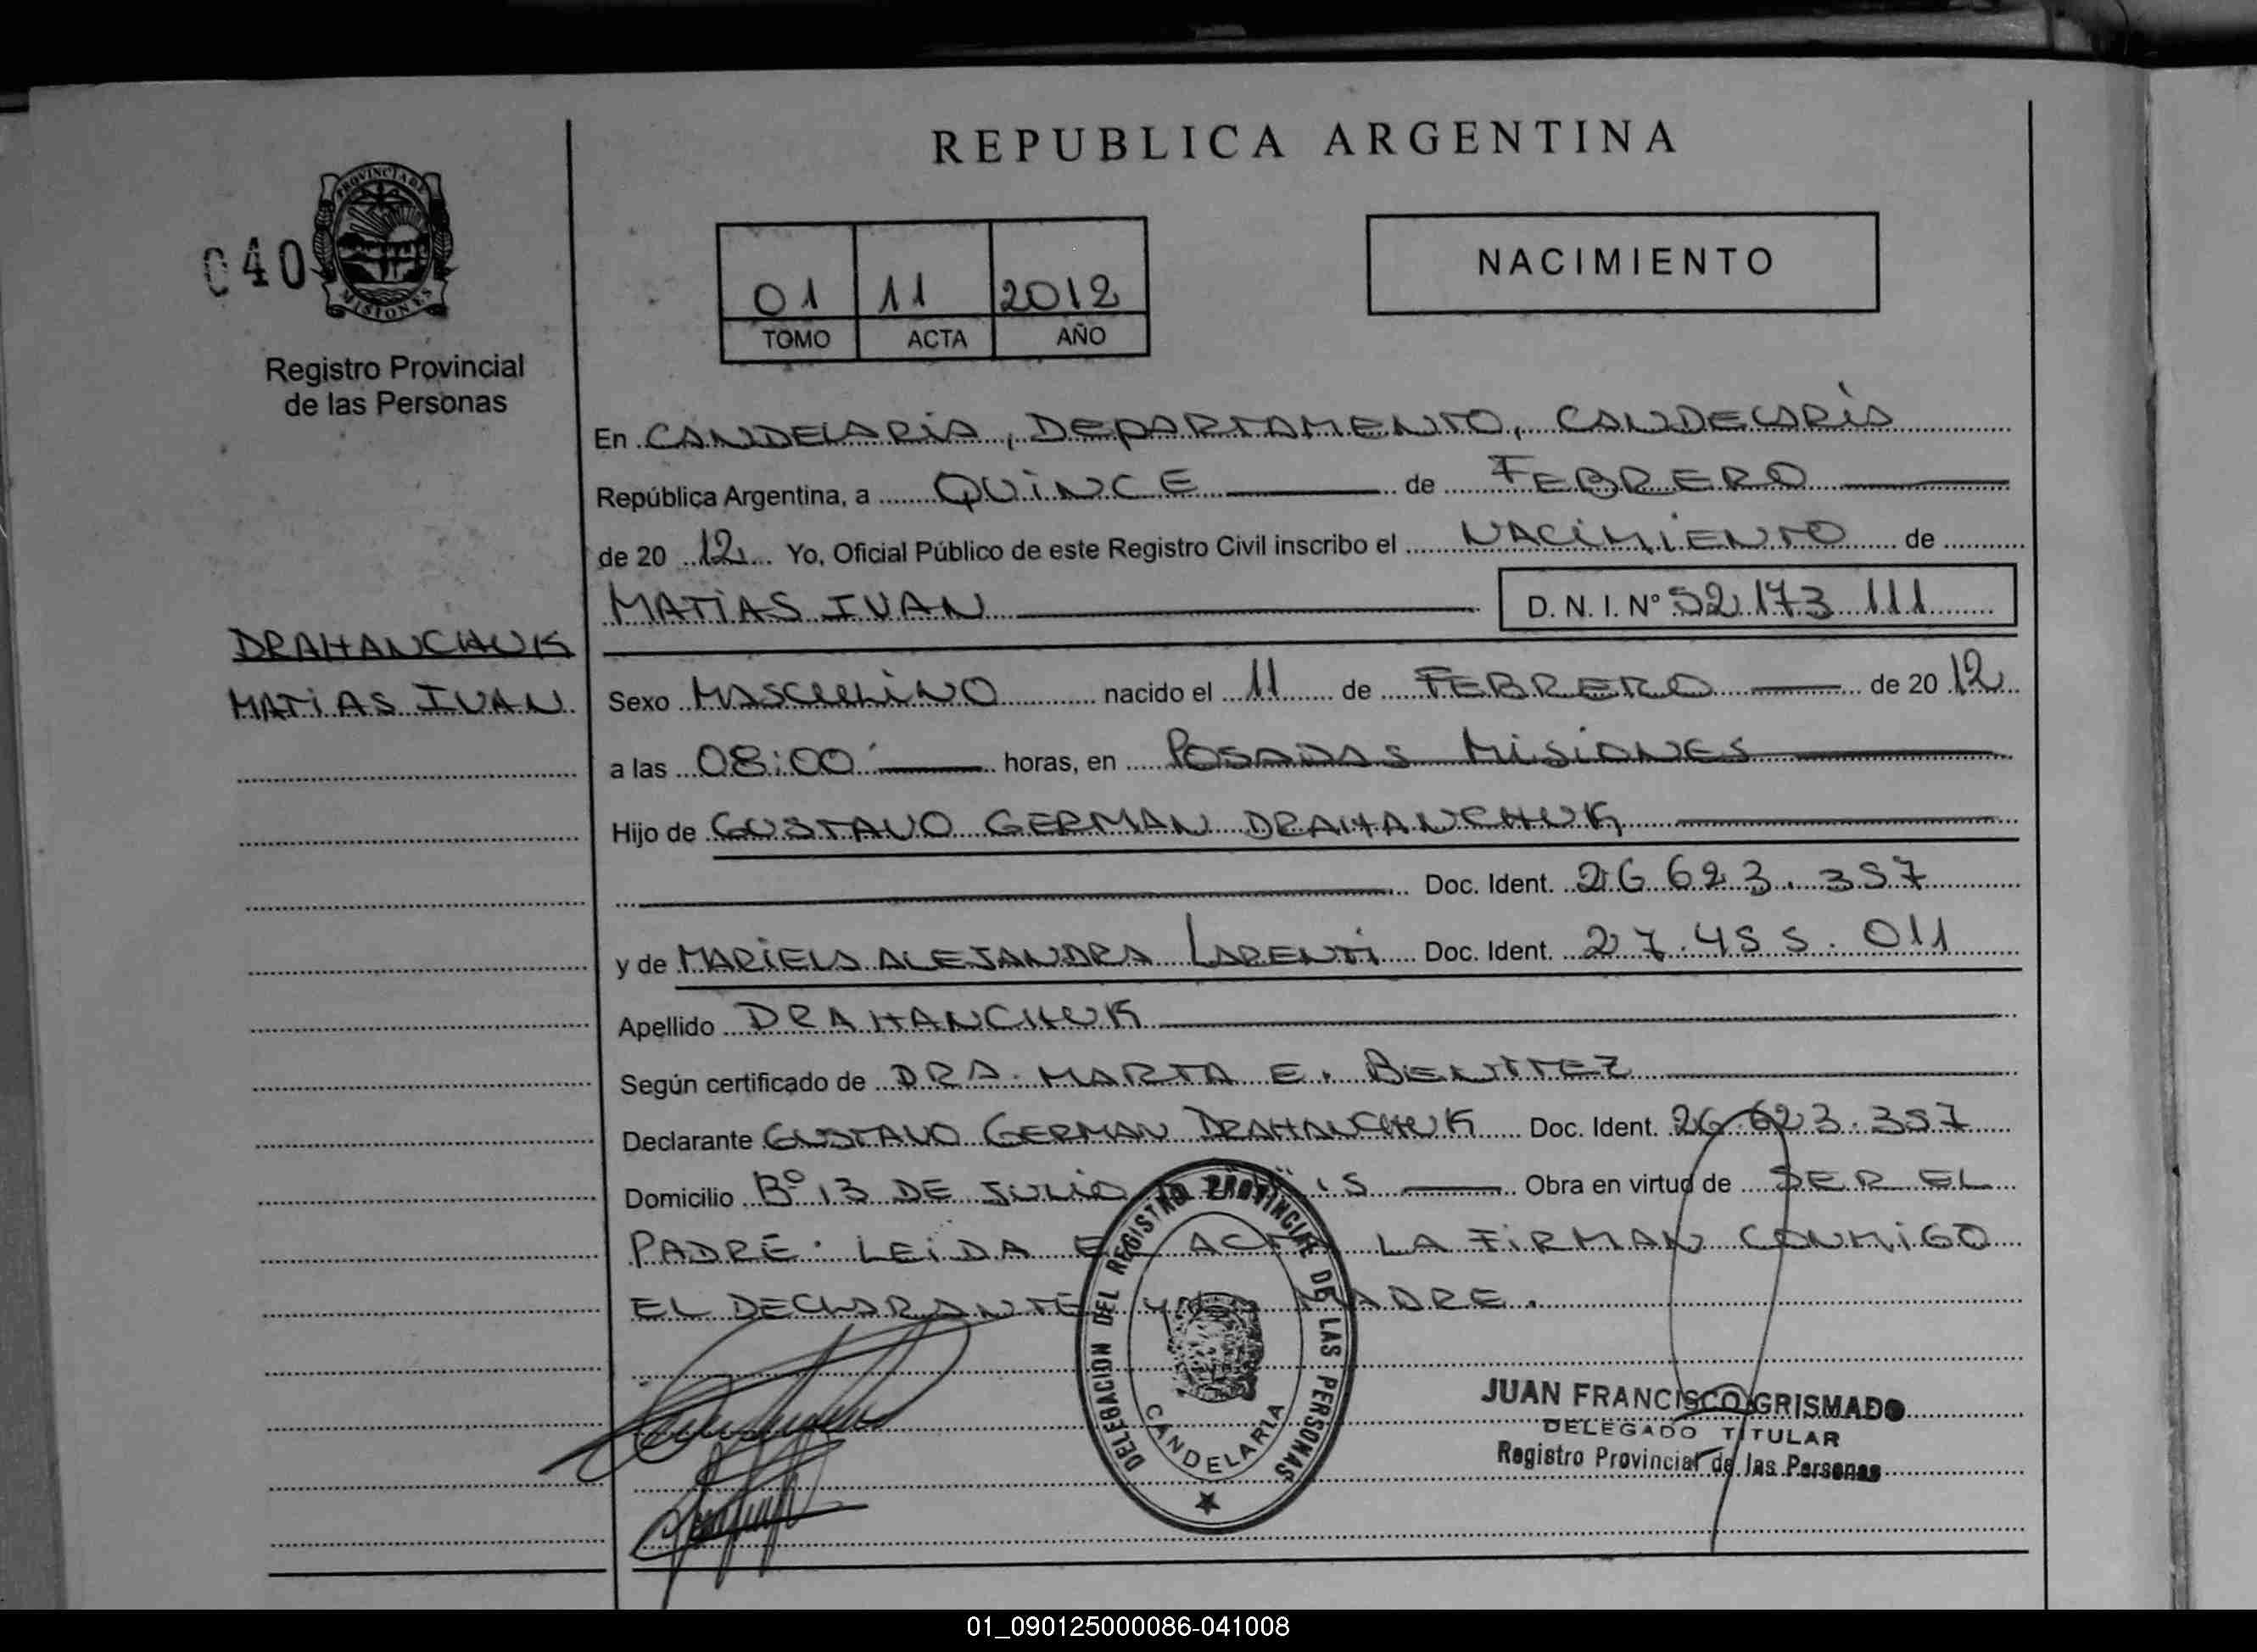 REPUBLICA ARGENTINA
PROVINCIA DE
MISIONES
040
Registro Provincial
de las Personas
01 11 2012
TOMO ACTA AÑO
NACIMIENTO
En CANDELARIA, DEPARTAMENTO, CANDELARIA
República Argentina, a QUINCE de FEBRERO
de 20 12 Yo, Oficial Público de este Registro Civil inscribo el NACIMIENTO de
MATIAS IVAN D. N. I. Nº 52 173 111
DRAHANCHUK
MATIAS IVAN
Sexo MASCULINO nacido el 11 de FEBRERO de 20 12
a las 08:00 horas, en POSADAS MISIONES
Hijo de GUSTAVO GERMAN DRAHANCHUK
Doc. Ident. 26 623.357
y de MARIELA ALEJANDRA LARENTI Doc. Ident. 27.455.011
Apellido DRAHANCHUK
Según certificado de DRA. MARTA E. BENITEZ
Declarante GUSTAVO GERMAN DRAHANCHUK Doc. Ident. 26.623.357
Domicilio Bº 13 DE JULIO Obra en virtud de SER EL
PADRE. LEIDA EL ACTA LA FIRMAN CONMIGO
EL DECLARANTE Y LA MADRE.
DELEGACION DEL REGISTRO PROVINCIAL DE LAS PERSONAS
CANDELARIA
JUAN FRANCISCO GRISMADO
DELEGADO TITULAR
Registro Provincial de las Personas
01_090125000086-041008